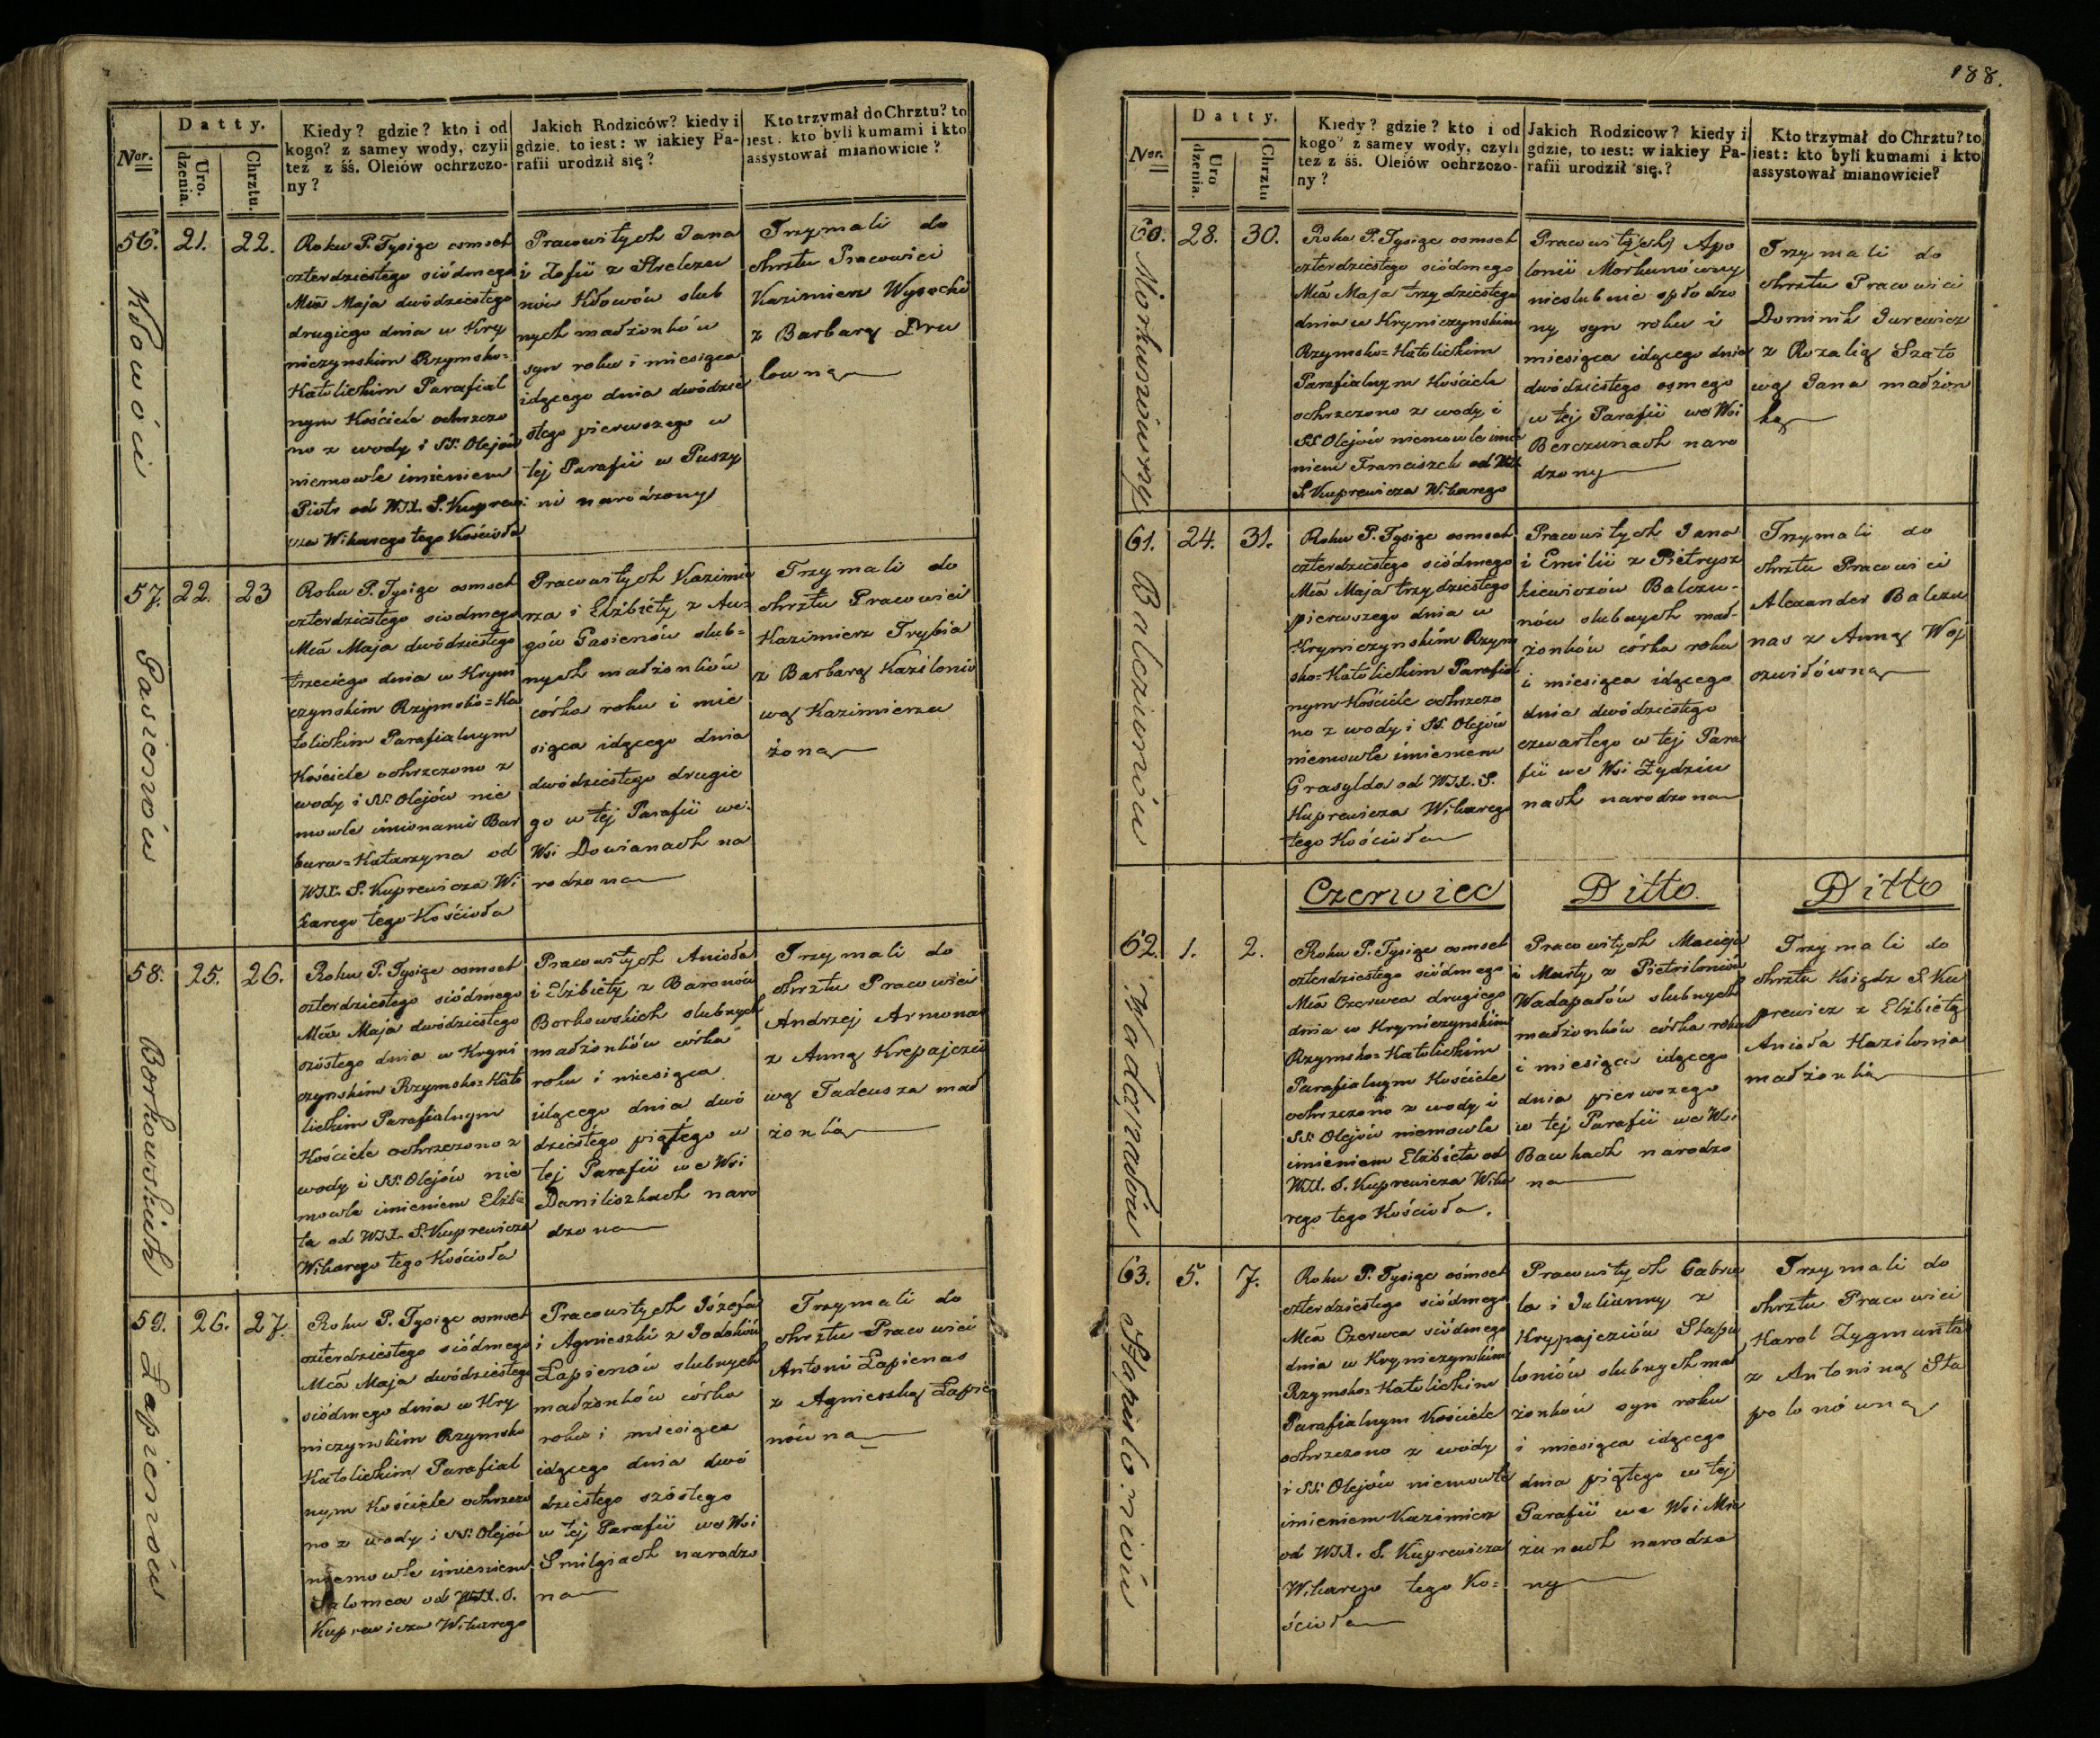 Datty.
Nor.
Urodzenia.
Chrztu.
Kiedy? gdzie? kto i od
kogo? z samey wody, czyli
też z śś. Oleiów ochrzczo-
ny?
Jakich Rodziców? kiedy i
gdzie, to iest: w iakiey Pa-
rafii urodził się?
Kto trzymał do Chrztu? to
iest: kto byli kumami i kto
assystował mianowicie?
56.
21.
22.
Kłowoci
Roku P. Tysiąc osmset
czterdziestego siódmego
Mca Maja dwódziestego
drugiego dnia w Kry
niczynskim Rzymsko=
Katolickim Parafial
nym Kościele ochrzczo
no z wody i SS. Olejów
niemowle imieniem
Piotr od WJX. S. Kuprewi
cza Wikarego tego Kościoła
Pracowitych Jana
i Zofii z Strelczu
nów Kłowów slub
nych małżonków
syn roku i miesiąca
idącego dnia dwódzie
stego pierwszego w
tej Parafii w Puszy
ni narodzony
Trzymali do
chrztu Pracowici
Kazimierz Wysocki
z Barbarą Dru
lowną
57.
22.
23
Gasienów
Roku P. Tysiąc osmset
czterdziestego siodmego
Mca Maja dwódziestego
trzeciego dnia w Kryni
czynskim Rzymsko=Ka
tolickim Parafialnym
Kościele ochrzczono z
wody i SS. Olejów nie
mowle imionami Bar
bara=Katarzyna od
WJX. S. Kuprewicza Wi
karego tego Kościoła
Pracowitych Kazimie
rza i Elżbiety z Au=
gów Gasienów slub=
nych małżonków
córka roku i mie
siąca idącego dnia
dwódziestego drugie
go w tej Parafii we
Wsi Dowianach na
rodzona
Trzymali do
chrztu Pracowici
Kazimierz Trybia
z Barbarą Kazilonio
wą Kazimierza
żoną
58.
25.
26.
Borkowskich
Roku P. Tysiąc osmset
czterdziestego siódmego
Mca Maja dwódziestego
szóstego dnia w Kryni
czynskim Rzymsko=Kato
lickim Parafialnym
Kościele ochrzczono z
wody i SS. Olejów nie
mowle imieniem Elżbie
ta od WJX. S. Kuprewicza
Wikarego tego Kościoła
Pracowitych Anioła
i Elżbiety z Baronów
Borkowskich slubnych
małżonków córka
roku i miesiąca
idącego dnia dwó
dziestego piątego w
tej Parafii we Wsi
Daniliszkach naro
dzona
Trzymali do
chrztu Pracowici
Andrzej Armonas
z Anną Krepajczio
wą Tadeusza mał
żonką
59.
26.
27.
Łapienów
Roku P. Tysiąc osmset
czterdziestego siódmego
Mca Maja dwódziestego
siódmego dnia w Kry
niczynskim Rzymsko
Katolickim Parafial
nym Kościele ochrzczo
no z wody i SS. Olejów
niemowle imieniem
Salomea od WJX. S.
Kuprewicza Wikarego
Pracowitych Józefa
i Agnieszki z Jodoków
Łapienów slubnych
małżonków córka
roku i miesiąca
idącego dnia dwó
dziestego szóstego
w tej Parafii we Wsi
Smilgiach narodzo
na
Trzymali do
chrztu Pracowici
Antoni Łapienas
z Agnieszką Łapie
nówną
188.
Datty.
Nor.
Urodzenia.
Chrztu
Kiedy? gdzie? kto i od
kogo? z samey wody, czyli
też z śś. Oleiów ochrzczo-
ny?
Jakich Rodziców? kiedy i
gdzie, to iest: w iakiey Pa-
rafii urodził się?
Kto trzymał do Chrztu? to
iest: kto byli kumami i kto
assystował mianowicie?
60.
28.
30.
Morkunówny
Roku P. Tysiąc osmset
czterdziestego siódmego
Mca Maja trzydziestego
dnia w Kryniczynskim
Rzymsko=Katolickim
Parafialnym Kościele
ochrzczono z wody i
SS. Olejów niemowle imie
niem Franciszek od WJX
S. Kuprewicza Wikarego
Pracowitych Apo
lonii Morkunówny
nieslubnie spłodzo
ny syn roku i
miesiąca idącego dnia
dwódziestego osmego
w tej Parafii we Wsi
Berczunach naro
dzony
Trzymali do
chrztu Pracowici
Dominik Jurewicz
z Rozalią Szato
wą Jana małżon
ką
61.
24.
31.
Balcziunów
Roku P. Tysiąc osmset
czterdziestego siódmego
Mca Maja trzydziestego
pierwszego dnia w
Kryniczynskim Rzym
sko=Katolickim Parafial
nym Kościele ochrzczo
no z wody i SS. Olejów
niemowle imieniem
Grasylda od WJX. S.
Kuprewicza Wikarego
tego Kościoła
Pracowitych Jana
i Emilii z Pietrysz
kiewiczów Balczu=
nów slubnych mał=
żonków córka roku
i miesiąca idącego
dnia dwódziestego
czwartego w tej Para
fii we Wsi Żydziu
nach narodzona
Trzymali do
chrztu Pracowici
Alexander Balczu
nas z Anną Woj
szwiłówną
Czerwiec
Ditto.
Ditto
62.
1.
2.
Wadapałów
Roku P. Tysiąc osmset
czterdziestego siódmego
Mca Czerwca drugiego
dnia w Kryniczynskim
Rzymsko=Katolickim
Parafialnym Kościele
ochrzczono z wody i
SS. Olejów niemowle
imieniem Elżbieta od
WJX. S. Kuprewicza Wika
rego tego Kościoła.
Pracowitych Macieja
i Marty z Pietriloniów
Wadapałów slubnych
małżonków córka roku
i miesiąca idącego
dnia pierwszego
w tej Parafii we Wsi
Bawkach narodzo
na
Trzymali do
chrztu Ksiądz S. Ku
prewicz z Elżbietą
Anioła Kazilonia
małżonką
63.
5.
7.
Stapulioniów
Roku P. Tysiąc ośmset
czterdziestego siódmego
Mca Czerwca siódmego
dnia w Kryniczynskim
Rzymsko=Katolickim
Parafialnym Kościele
ochrzczono z wody
i SS. Olejów niemowle
imieniem Kazimierz
od WJX. S. Kuprewicza
Wikarego tego Ko=
ścioła
Pracowitych Gabrie
la i Julianny z
Krypajcziów Stapu
loniów slubnych mał
żonków syn roku
i miesiąca idącego
dnia piątego w tej
Parafii we Wsi Mie
żunach narodzo
ny
Trzymali do
chrztu Pracowici
Karol Zygmunta
z Antoniną Sta
polonówną